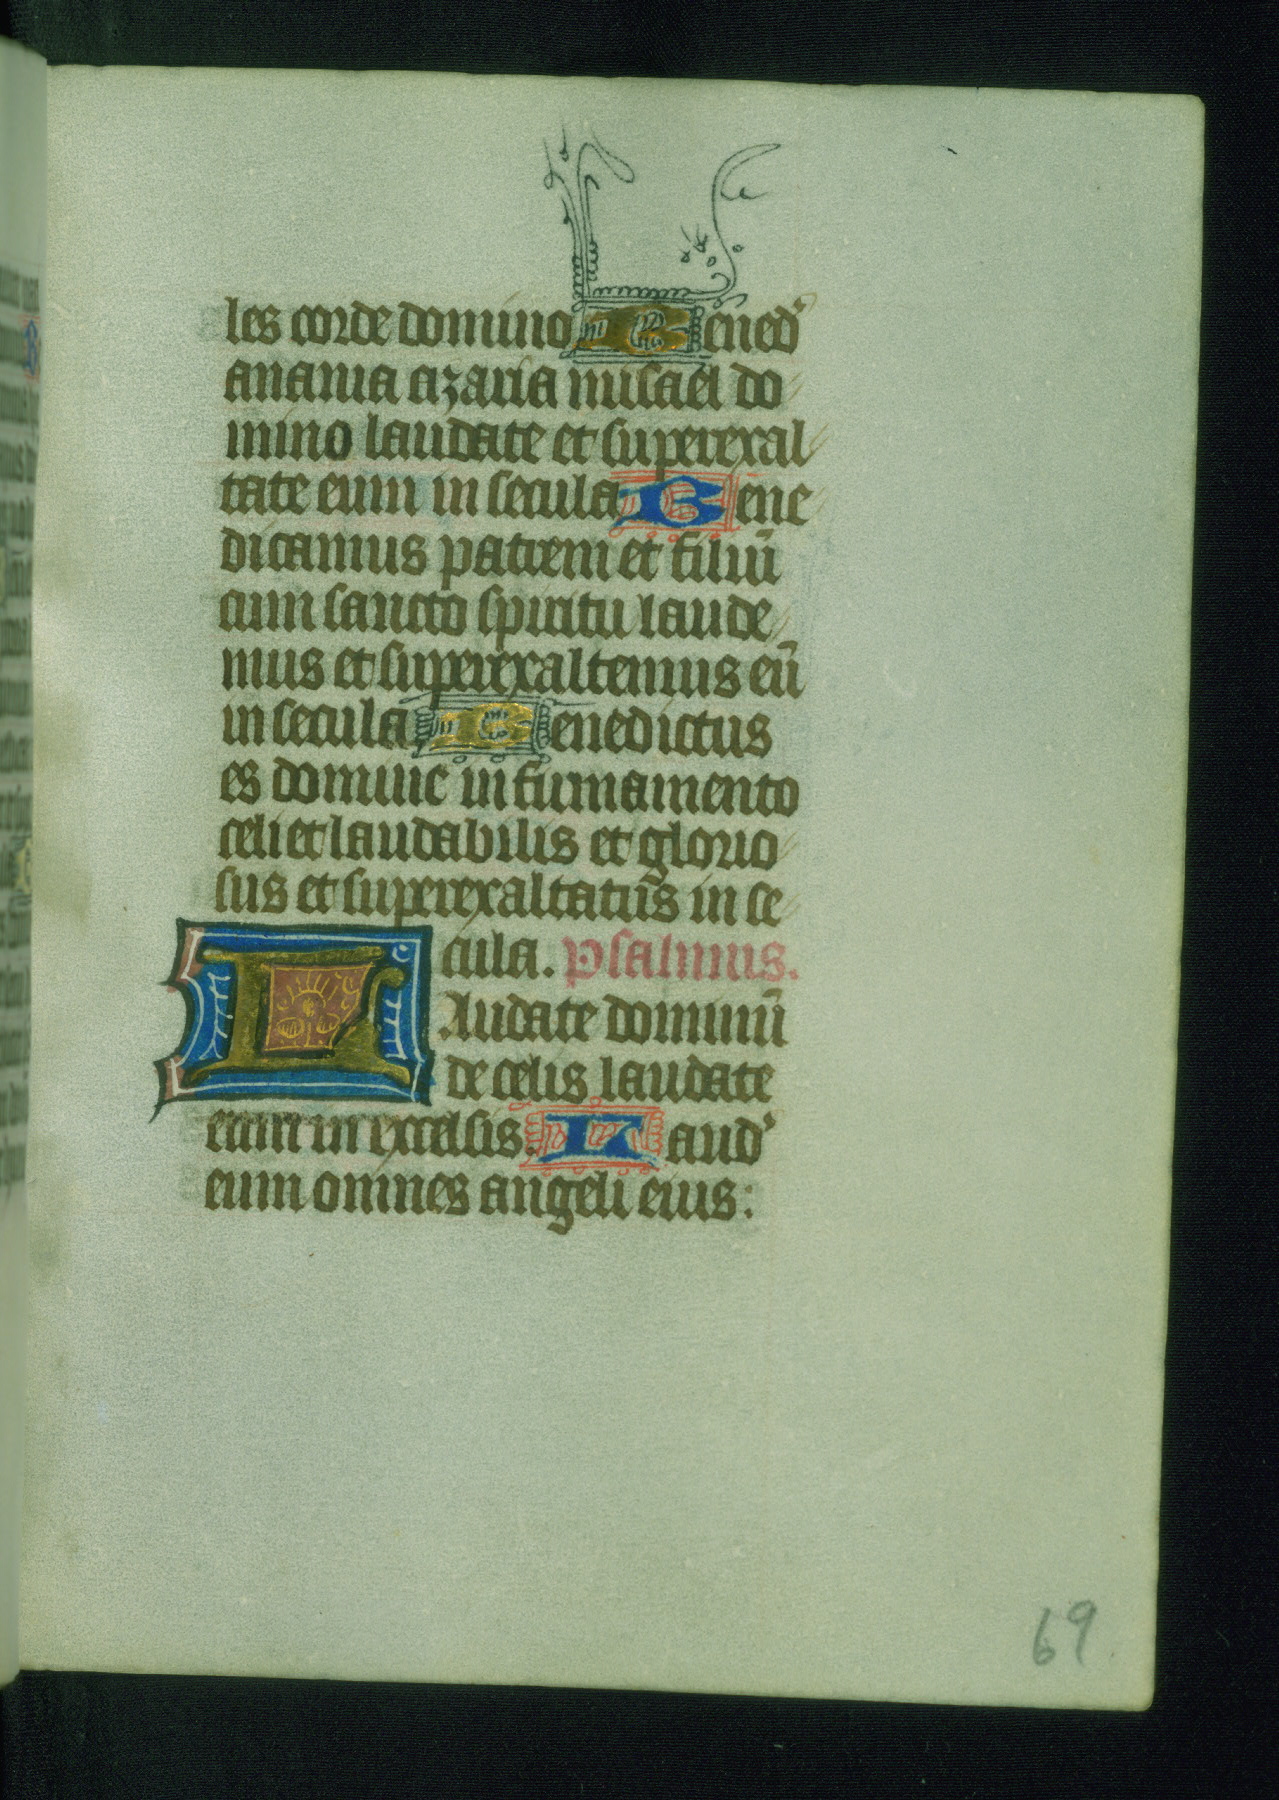 les corde domino Bened'
anania azaria misael do
mino laudate et superexal
tate eum in secula Bene
dicamus patrem et filiū
cum sancto spiritu laude
mus et superexaltemus eū
in secula Benedictus
es domine in firmamento
celi et laudabilis et glorio
sus et superexaltatus in se
cula. psalmus.
LAudate dominū
de celis laudate
eum in excelsis. Laud'
eum omnes angeli eius:
69